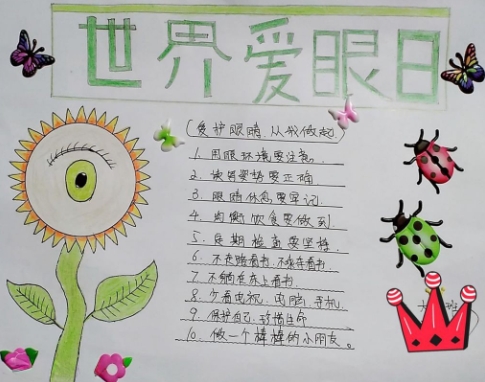 世界爱眼日
(爱护眼睛，从我做起)
1. 用眼环境要注意.
2. 读写姿势要正确
3. 眼睛休息要牢记.
4. 均衡饮食要做到.
5. 定期检查要坚持.
6. 不走路看书.不躺着看书.
7. 不躺桌上看书.
8. 少看电视、电脑、手机.
9. 保护自己.珍惜生命
10. 做一个棒棒的小朋友。
班